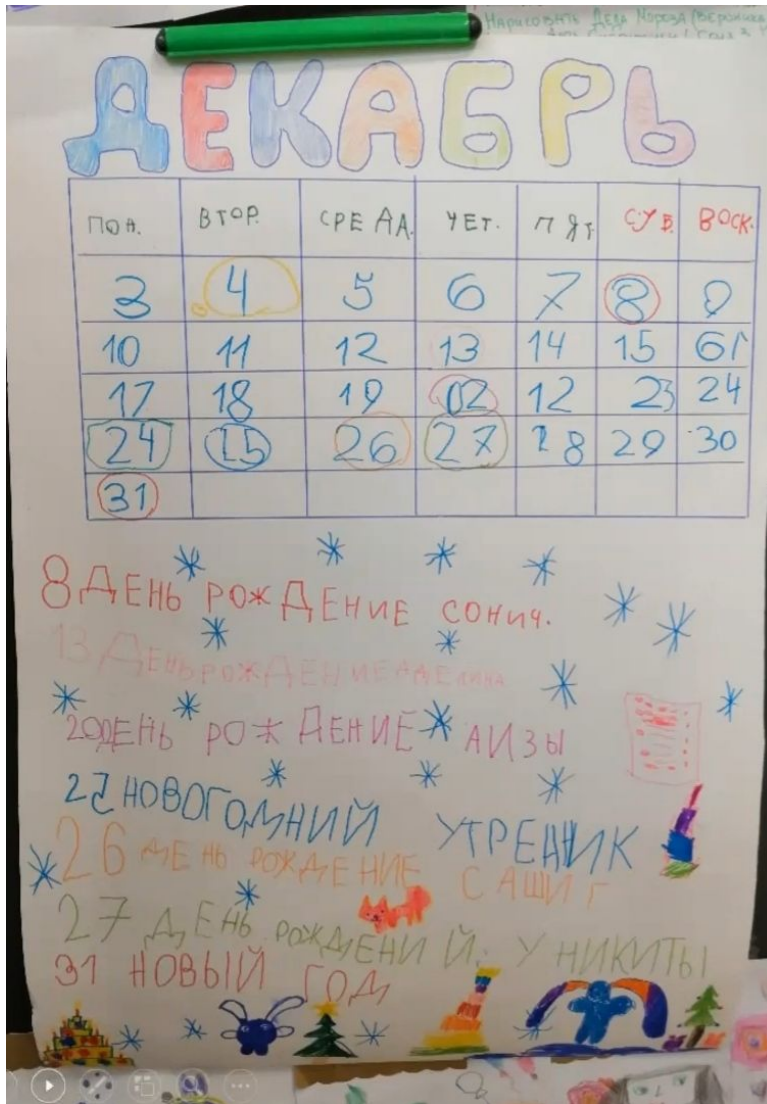 Нарисовать Деда Мороза (Вероника
ДЕКАБРЬ
ПОН. ВТОР. СРЕДА. ЧЕТ. ПЯТ. СУБ. ВОСК.
3 4 5 6 7 8 9
10 11 12 13 14 15 61
17 18 19 02 12 23 24
24 25 26 27 28 29 30
31
8 ДЕНЬ РОЖДЕНИЕ СОНИЧ.
13 ДЕНЬ РОЖДЕНИЕ АДЕЛИНА
20 ДЕНЬ РОЖДЕНИЕ АИЗЫ
25 НОВОГОМНИЙ УТРЕННИК
26 ДЕНЬ РОЖДЕНИЕ САШИ Г
27 ДЕНЬ РОЖДЕНИЙ. У НИКИТЫ
31 НОВЫЙ ГОД